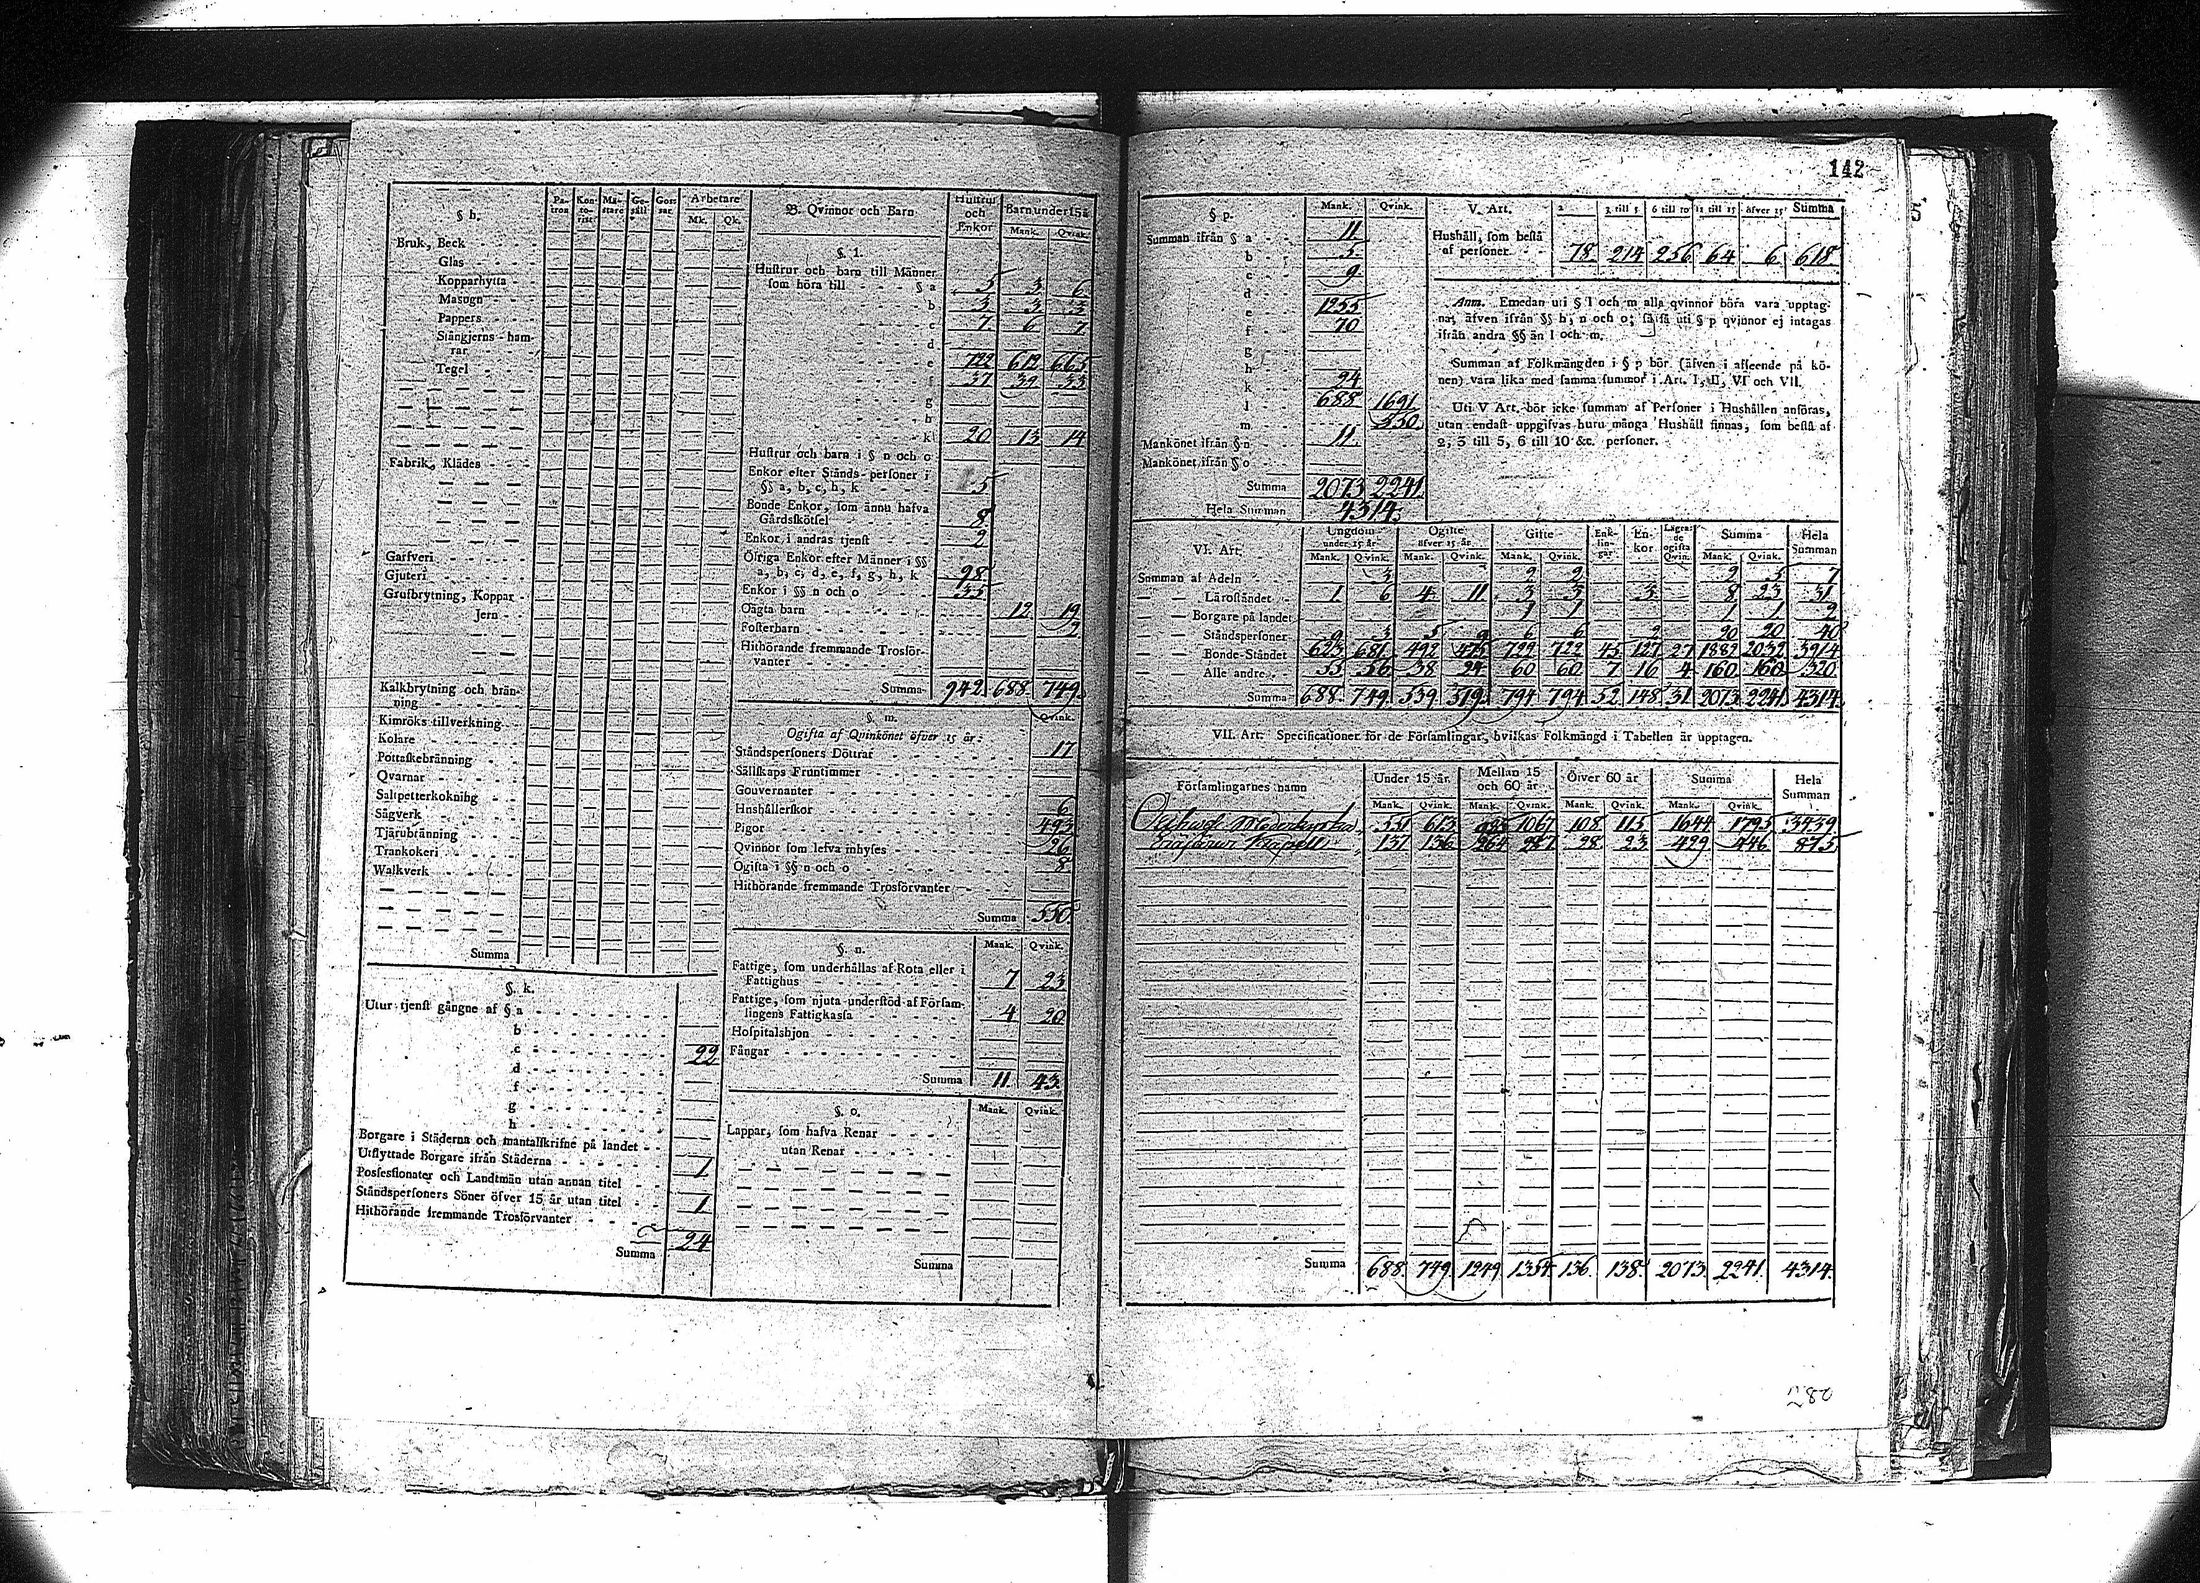 142
§ h.
Pa-tron Kon-to-rist Mä-stare Ge-säll Gos-sar Arbetare
Mk. Qk.
Bruk, Beck
Glas
Kopparhytta
Masugn
Pappers
Stångjerns-ham-
rar
Tegel
Fabrik, Klädes
Garfveri
Gjuteri
Grufbrytning, Koppar
Jern
Kalkbrytning och brän-
ning
Kimröks tillverkning
Kolare
Pottaskebränning
Qvarnar
Saltpetterkokning
Sågverk
Tjärubränning
Trankokeri
Walkverk
Summa
§. k.
Utur tjenst gångne af § a
b
c 22
d
f
g
h
Borgare i Städerna och mantalskrifne på landet
Utflyttade Borgare ifrån Städerna
Possessionater och Landtmän utan annan titel 1
Ståndspersoners Söner öfver 15 år utan titel 1
Hithörande fremmande Trosförvanter
Summa 24
B. Qvinnor och Barn
Hustrur och Enkor Barn under 15 å.
Mank. Qvink.
§. l.
Hustrur och barn till Männer
som höra till § a 5 3 6
b 3 3 3
c 7 6 7
d
e 722 612 665
f 37 39 33
g
h
k 20 13 14
Hustrur och barn i § n och o
Enkor efter Stånds-personer i
§§ a, b, c, h, k 5
Bonde Enkor, som ännu hafva
Gårdsskötsel 8
Enkor i andras tjenst 2
Öfriga Enkor efter Männer i §§
a, b, c, d, e, f, g, h, k 98
Enkor i §§ n och o 35
Oägta barn 12 19
Fosterbarn 2
Hithörande fremmande Trosför-
vanter
Summa 942 688 749
§. m. Qvink.
Ogifta af Qvinkönet öfver 15 år:
Ståndspersoners Döttrar 17
Sällskaps Fruntimmer
Gouvernanter
Hushållerskor 6
Pigor 493
Qvinnor som lefva inhyses 26
Ogifta i §§ n och o 8
Hithörande fremmande Trosförvanter
Summa 550
§. n. Mank. Qvink.
Fattige, som underhållas af Rota eller i
Fattighus 7 23
Fattige, som njuta understöd af Försam-
lingens Fattigkassa 4 20
Hospitalshjon
Fångar
Summa 11 43
§. o. Mank. Qvink.
Lappar, som hafva Renar
utan Renar
Summa
§ p. Mank. Qvink.
Summan ifrån § a 11
b 5
c 9
d
e 1255
f 70
g
h
k 24
l 688 1691
m 550
Mankönet ifrån § n 11
Mankönet ifrån § o
Summa 2073 2241
Hela Summan 4314
V. Art. 2 3 till 5 6 till 10 11 till 15 öfver 15 Summa
Hushåll, som bestå
af personer 78 214 256 64 6 618
Anm. Emedan uti § l och m alla qvinnor böra vara upptag-
na, äfven ifrån §§ h, n och o; så få uti § p qvinnor ej intagas
ifrån andra §§ än l och m.
Summan af Folkmängden i § p bör (äfven i afseende på kö-
nen) vara lika med samma summor i Art. I, II, VI och VII.
Uti V Art. bör icke summan af Personer i Hushållen anföras,
utan endast uppgifvas huru många Hushåll finnas, som bestå af
2, 3 till 5, 6 till 10 &c. personer.
VI. Art. Ungdom under 15 år Ogifte öfver 15 år Gifte Enk-lin-gar En-kor Lägra-de ogifta Qvin. Summa Hela Summan
Mank. Qvink. Mank. Qvink. Mank. Qvink. Mank. Qvink.
Summan af Adeln 3 2 2 2 5 7
— — Läroståndet 1 6 4 11 3 3 3 8 23 31
— — Borgare på landet 1 1 1 1 2
— — Ståndspersoner 9 3 5 9 6 6 2 20 20 40
— — Bonde-Ståndet 623 681 492 475 722 722 45 127 27 1882 2032 3914
— — Alle andre 55 56 38 24 60 60 7 16 4 160 160 320
Summa 688 749 539 519 794 794 52 148 31 2073 2241 4314
VII. Art. Specificationer för de Församlingar, hvilkas Folkmängd i Tabellen är upptagen.
Församlingarnes namn Under 15 år Mellan 15 och 60 år Öfver 60 år Summa Hela Summan
Mank. Qvink. Mank. Qvink. Mank. Qvink. Mank. Qvink.
551 613 985 1067 108 115 1644 1795 3439
Kapell 137 136 264 287 28 23 429 446 875
Summa 688 749 1249 1354 136 138 2073 2241 4314